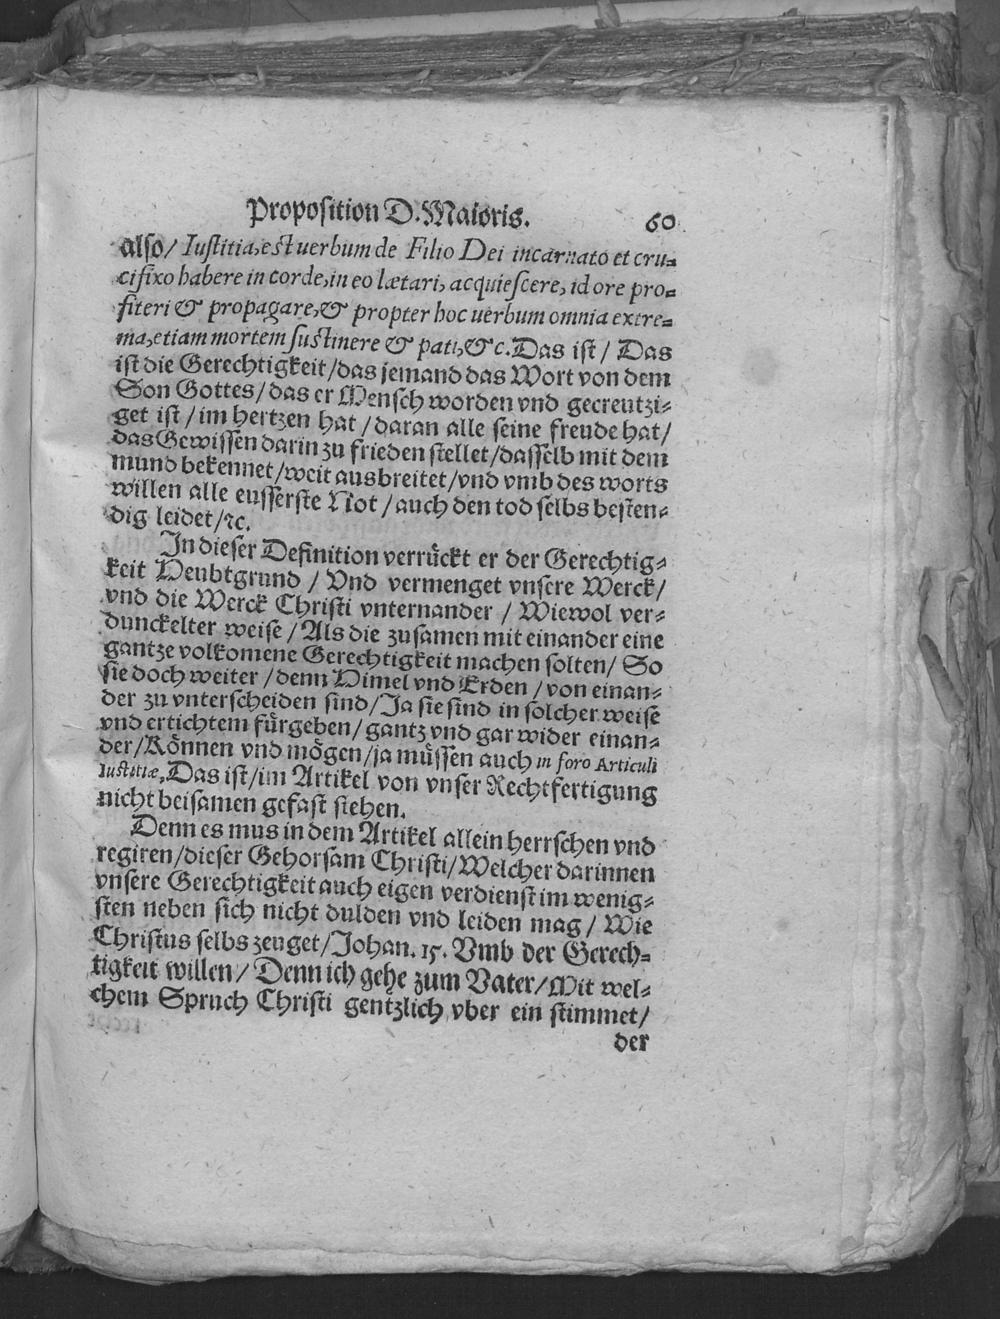 Proposition D. Maioris. 60
also/ Iustitia, est uerbum de Filio Dei incarnato et cru-
cifixo habere in corde, in eo lætari, acquiescere, id ore pro-
fiteri & propagare, & propter hoc uerbum omnia extre-
ma, etiam mortem sustinere & pati, &c. Das ist / Das
ist die Gerechtigkeit/das jemand das Wort von dem
Son Gottes/das er Mensch worden vnd gecreutzi-
get ist/im hertzen hat/daran alle seine freude hat/
das Gewissen darin zu frieden stellet/dasselb mit dem
mund bekennet/weit ausbreitet/vnd vmb des worts
willen alle eusserste Not/auch den tod selbs besten-
dig leidet/ꝛc.
In dieser Definition verrückt er der Gerechtig-
keit Heubtgrund / Vnd vermenget vnsere Werck/
vnd die Werck Christi vnternander / Wiewol ver-
dunckelter weise/Als die zusamen mit einander eine
gantze volkomene Gerechtigkeit machen solten/ So
sie doch weiter/denn Himel vnd Erden/von einan-
der zu vnterscheiden sind/Ja sie sind in solcher weise
vnd ertichtem fürgeben/gantz vnd gar wider einan-
der/Können vnd mögen/ja müssen auch in foro Articuli
Iustitiæ, Das ist/im Artikel von vnser Rechtfertigung
nicht beisamen gefast stehen.
Denn es mus in dem Artikel allein herrschen vnd
regiren/dieser Gehorsam Christi/Welcher darinnen
vnsere Gerechtigkeit auch eigen verdienst im wenig-
sten neben sich nicht dulden vnd leiden mag / Wie
Christus selbs zeuget/Johan. 15. Vmb der Gerech-
tigkeit willen/ Denn ich gehe zum Vater/Mit wel-
chem Spruch Christi gentzlich vber ein stimmet/
der